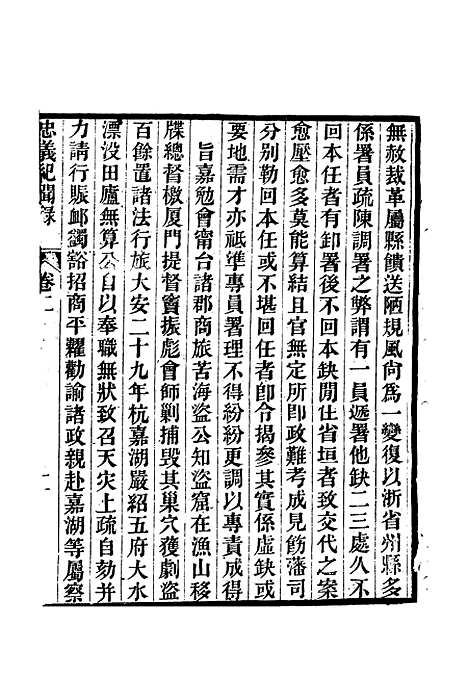 無赦裁革屬縣饋送陋規風尙爲一變復以浙省州縣多
係署員疏陳調署之弊謂有一員遞署他缺二三處久不
回本任者有卸署後不回本缺閒住省垣者致交代之案
愈壓愈多莫能算結且官無定所卽政難考成見飭藩司
分别勒回本任或不堪回任者卽令揭參其實係虛缺或
要地需才亦祗準專員署理不得紛紛更調以專責成得
旨嘉勉會甯台諸郡商旅苦海盜公知盜窟在漁山移
牒總督檄厦門提督竇振彪會師剿捕毁其巢穴獲劇盜
百餘置諸法行旅大安二十九年杭嘉湖嚴紹五府大水
漂没田廬無算公自以奉職無狀致召天灾上疏自劾并
力請行賑䘏蠲豁招商平糶勸諭諸政親赴嘉湖等屬察
忠義紀聞錄 卷二